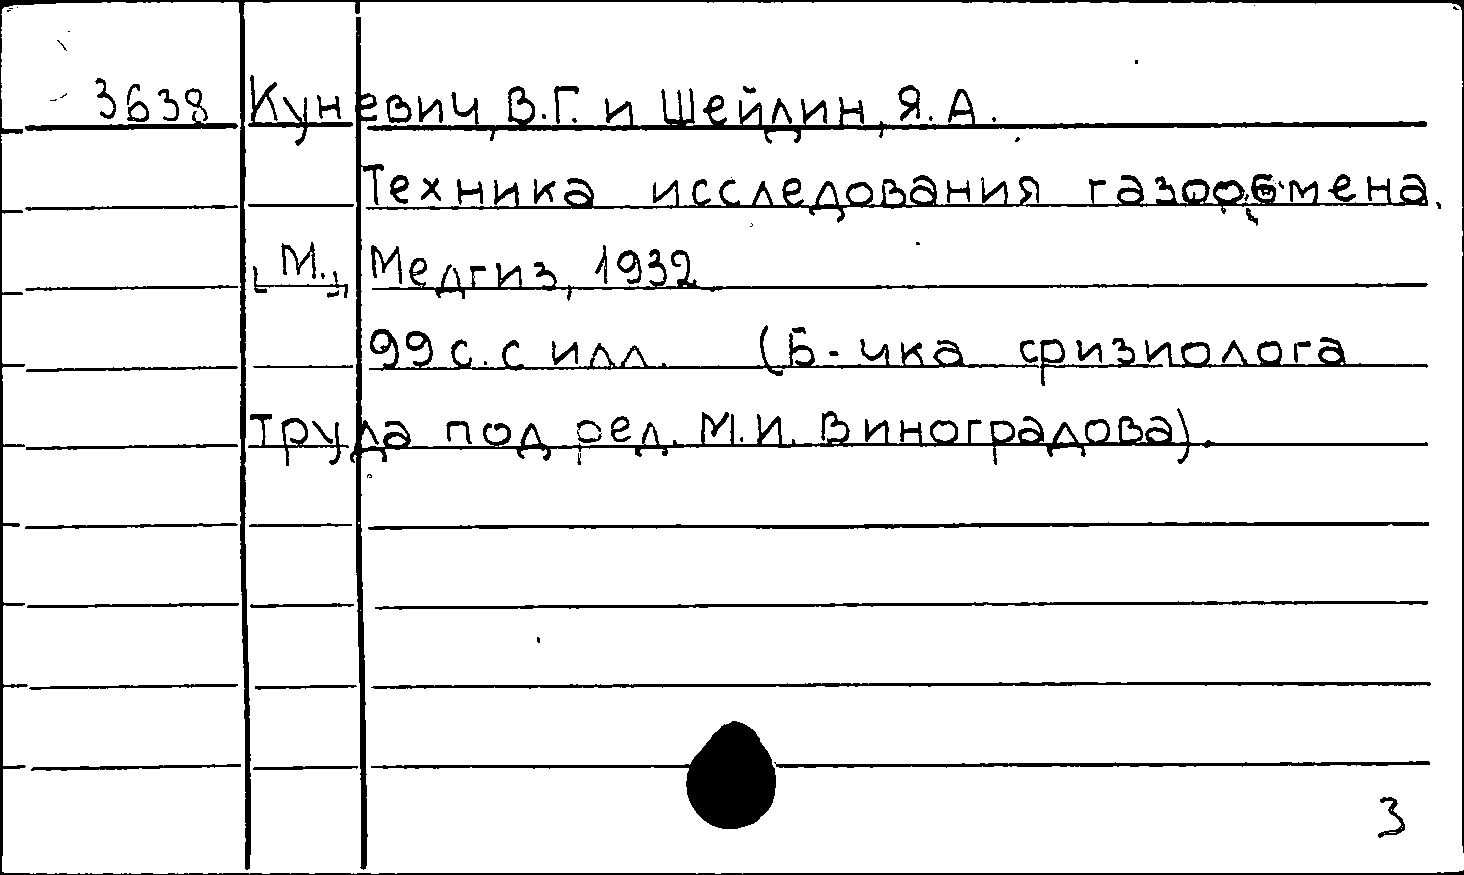 3638 Куневич, В.Г. и Шейдин, Я.А.
Техника исследования газообмена.
[М.], Медгиз, 1932
99 с. с илл. (Б-чка физиолога
труда под ред. М.И. Виноградова).
3